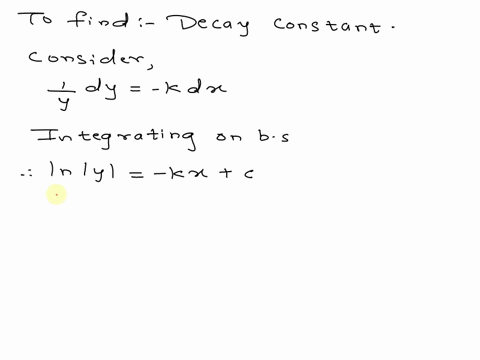 To find :- Decay constant.
Consider,
1/y dy = -k dx
Integrating on b.s
∴ ln |y| = -kx + c